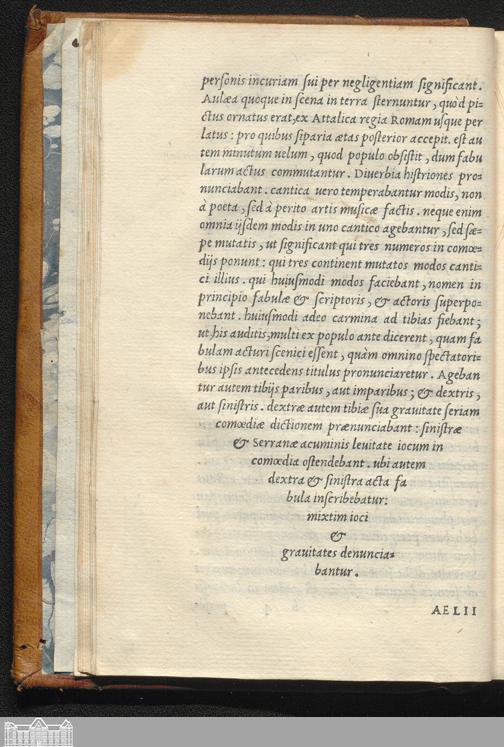 personis incuriam sui per negligentiam significant.
Aulæa quoque in scena in terra sternuntur, quòd pi-
ctus ornatus erat, ex Attalica regia Romam usque per
latus: pro quibus siparia ætas posterior accepit. est au
tem minutum uelum, quod populo obsistit, dum fabu
larum actus commutantur. Diuerbia histriones pro-
nunciabant. cantica uero temperabantur modis, non
à poeta, sed à perito artis musicæ factis. neque enim
omnia ijsdem modis in uno cantico agebantur, sed sæ-
pe mutatis, ut significant qui tres numeros in comœ-
dijs ponunt: qui tres continent mutatos modos canti-
ci illius. qui huiusmodi modos faciebant, nomen in
principio fabulæ & scriptoris, & actoris superpo-
nebant. huiusmodi adeo carmina ad tibias fiebant;
ut, his auditis, multi ex populo ante dicerent, quam fa
bulam acturi scenici essent, quàm omnino spectatori-
bus ipsis antecedens titulus pronunciaretur. Ageban
tur autem tibijs paribus, aut imparibus; & dextris,
aut sinistris. dextræ autem tibiæ sua grauitate seriam
comœdiæ dictionem prænunciabant: sinistræ
& Serranæ acuminis leuitate iocum in
comœdia ostendebant. ubi autem
dextra & sinistra acta fa
bula inscribebatur:
mixtim ioci
&
grauitates denuncia-
bantur.
AELII